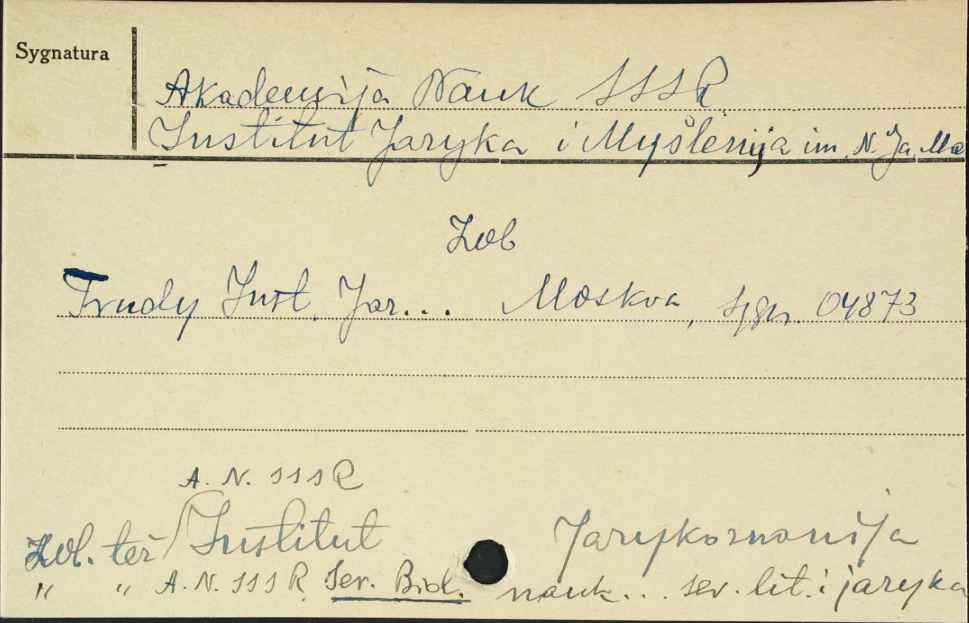 Sygnatura
Akademija Nauk SSSR
Institut Jazyka i Myšlenija im. N. Ja. Ma
Zob
Trudy Inst. Jaz... Moskva, sygn. 04873
A. N. SSSR
Zob. też Institut Jazykoznanija
" " A. N. SSSR Ser. Bibl. nauk... ser. lit. i jazyka